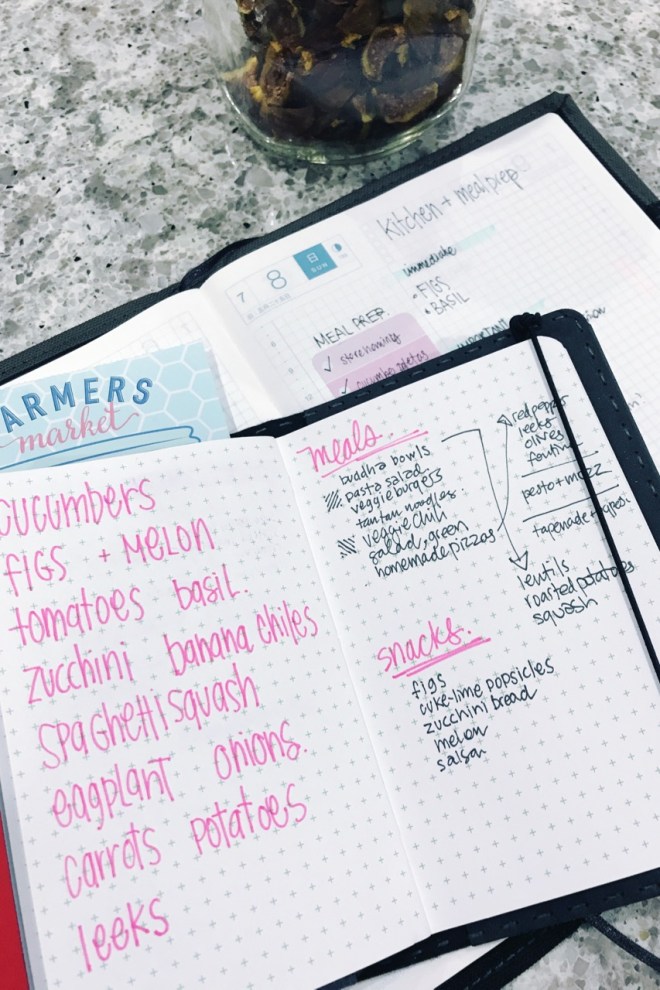 Kitchen + meal prep.
immediate
• FIGS
• BASIL
7
8
日
SUN
MEAL PREP.
✓ store hominy
✓ cucumber
ARMERS
market
cucumbers
figs + melon
tomatoes basil.
zucchini banana chiles
spaghetti squash
eggplant onions.
carrots potatoes
leeks
meals.
buddha bowls
pasta salad
veggie burgers
tantan noodles.
veggie chili
salad, green
homemade pizzas
red pepper
leeks
olives
pesto + mozz
tapenade +
lentils
roasted potatoes
squash
snacks.
figs
cuke-lime popsicles
zucchini bread
melon
salsa